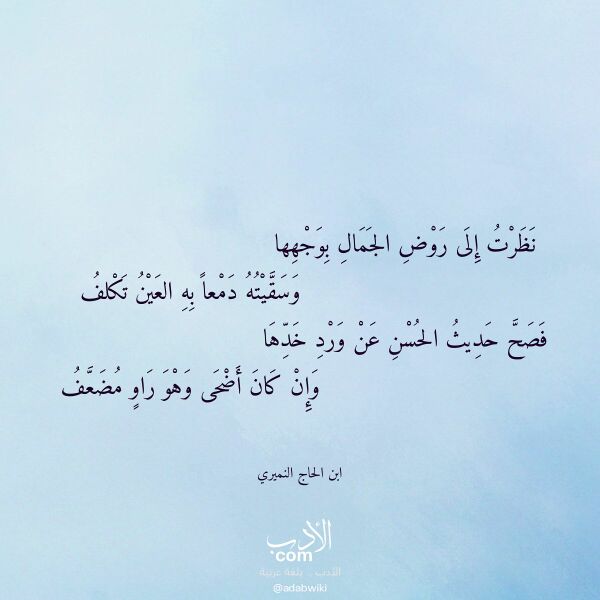 نَظَرْتُ إِلَى رَوْضِ الجَمَالِ بِوَجْهِها
وَسَقَّيْتُهُ دَمْعاً بِهِ العَيْنُ تَكْلفُ
فَصَحَّ حَدِيثُ الحُسْنِ عَنْ وَرْدِ خَدِّهَا
وَإِنْ كَانَ أَضْحَى وَهْوَ رَاوٍ مُضَعَّفُ
ابن الحاج النميري
الأدب
com
الأدب .. بلغة عربية
@adabwiki